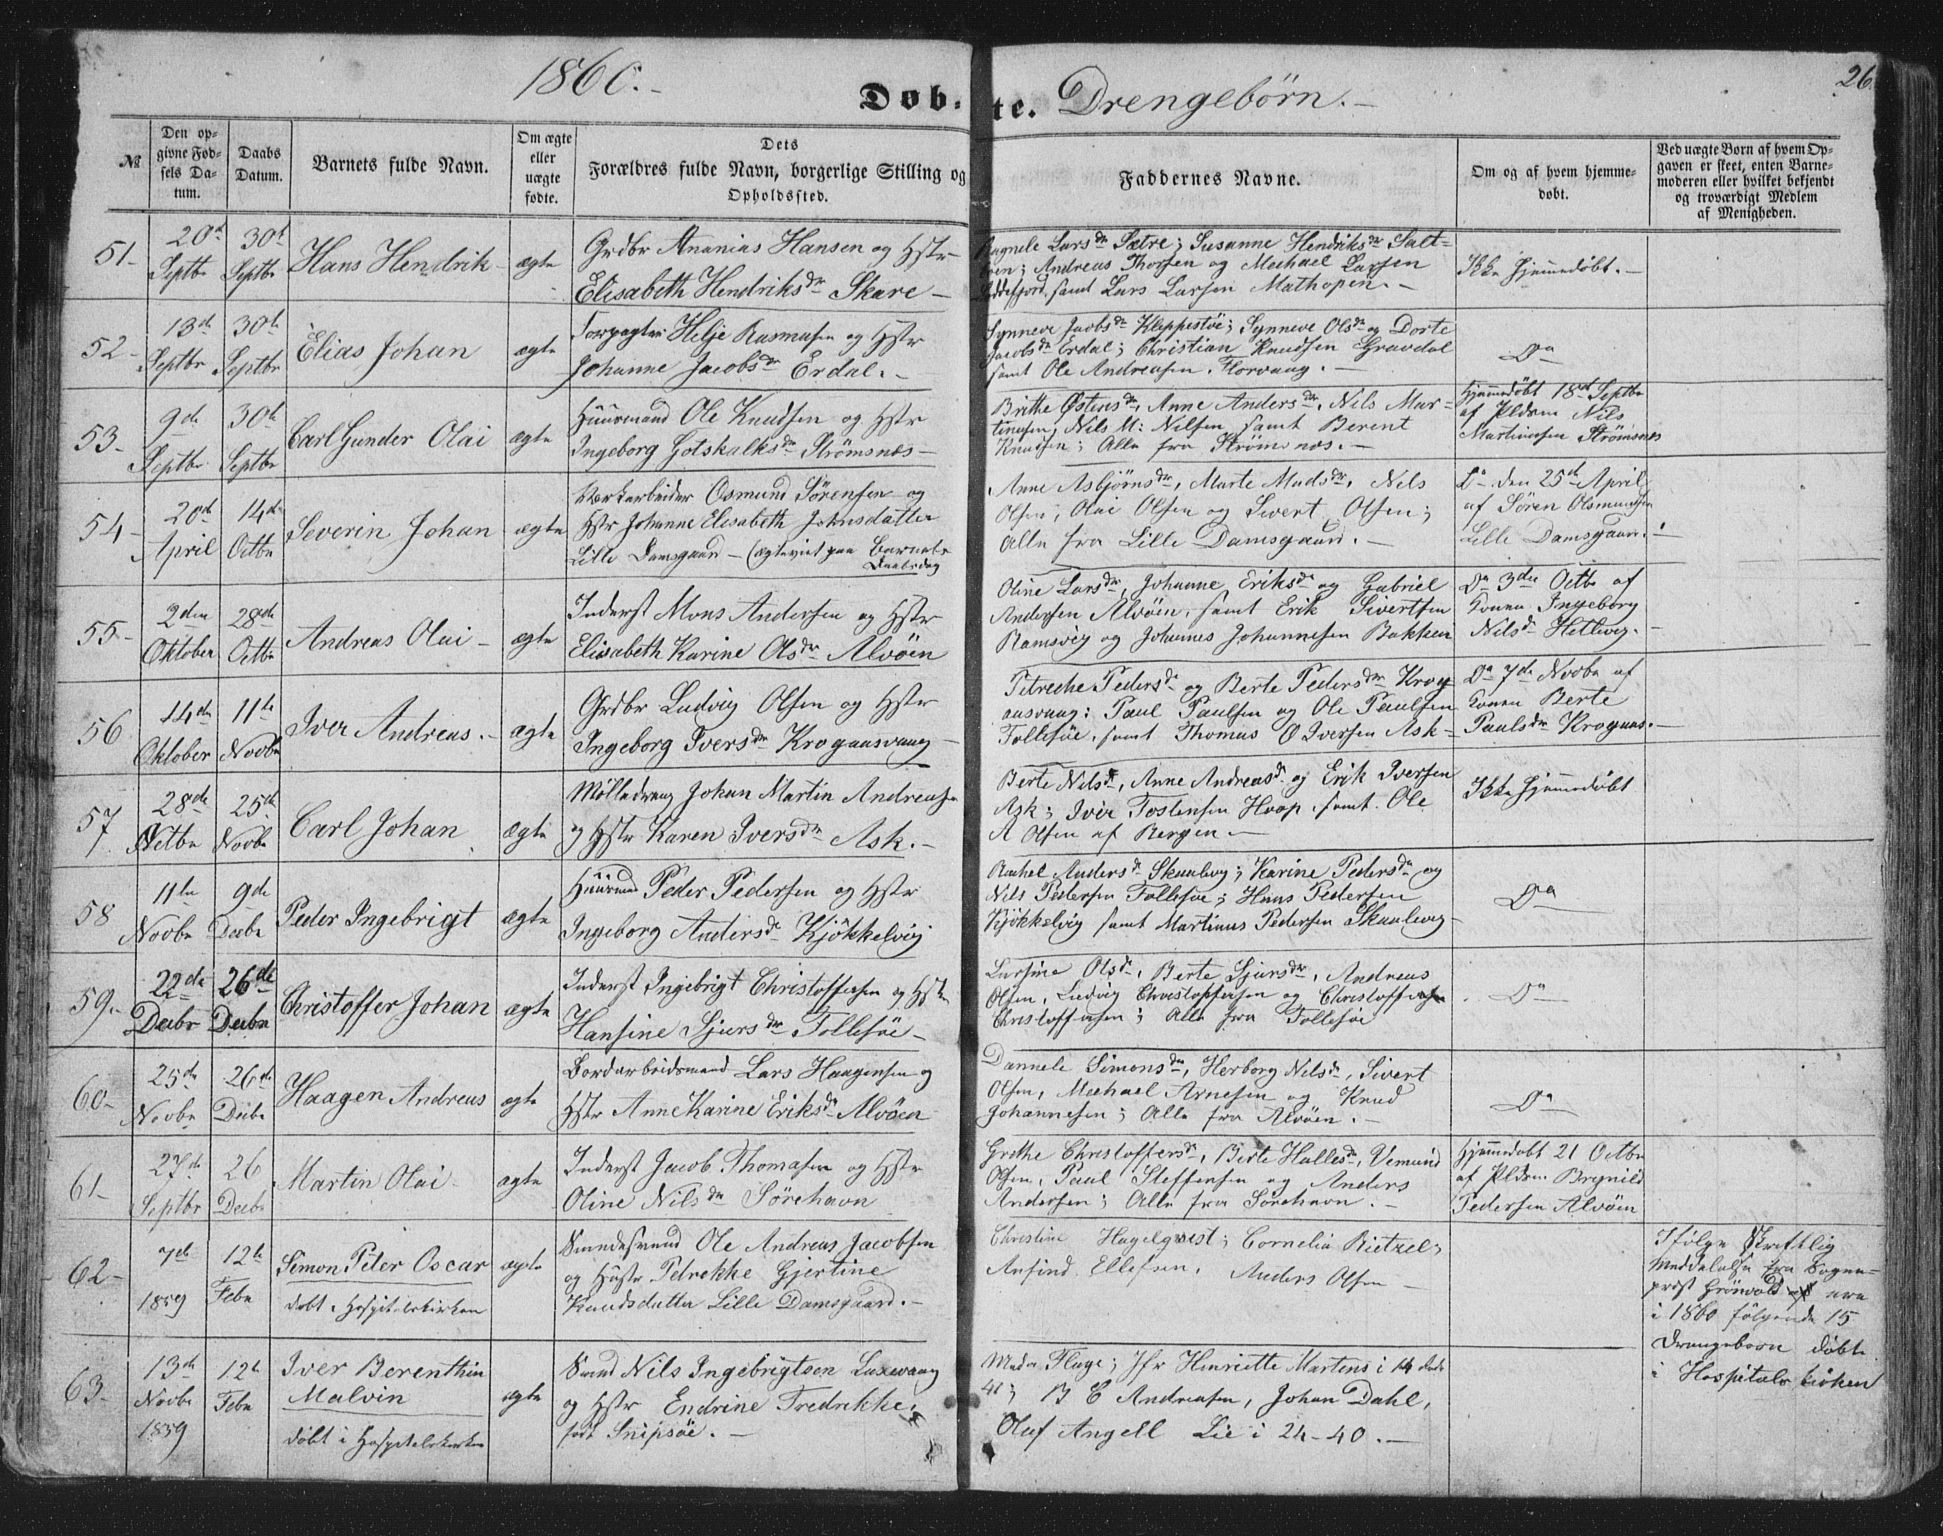 1860.-
Døb-te. Drengebørn.-
26.
№
Den op-
givne Fød-
sels Da-
tum.
Daabs
Datum.
Barnets fulde Navn.
Om ægte
eller
uægte
fødte.
Dets
Forældres fulde Navn, borgerlige Stilling og
Opholdssted.
Faddernes Navne.
Om og af hvem hjemme-
døbt.
Ved uægte Børn af hvem Op-
gaven er skeet, enten Barne-
moderen eller hvilket bekjendt
og troværdigt Medlem
af Menigheden.
51-
20d
Septbr
30t
Septbr
Hans Hendrik-
ægte
Grdbr Ananias Hansen og Hstr
Elisabeth Hendriksdr Skare-
Ragnele Larsdr Sætre; Susanne Hendriksdr Salt-
Andreas Thorsen og Mechael Larsen
samt Lars Larsen Mathopen.-
Ikke Hjemmedøbt.-
52-
13d
Septbr
30te
Septbr
Elias Johan
ægte
Forpagter Helje Rasmusen og Hstr
Johanne Jacobsdr Erdal.-
Synneve Jacobsdr Kleppestøe; Synneve Olsdr og Dorte
Jacobsdr Erdal; Christian Knudsen Gravdal
samt Ole Andreasen Florvaag.-
Da
53-
9de
Septbr
30te
Septbr
Carl Gunder Olai
ægte
Huusmand Ole Knudsen og Hstr
Ingeborg Gotskalksdr Strømsnæs-
Brithe Østensdr, Anne Andersdr, Nils Mar-
tinesen, Nils M: Nilsen samt Berent
Knudsen; Alle fra Strømsnæs.-
Hjemmedøbt 18de Septbr
af Pldrm Nils
Martinesen Strømsnæs
54-
20d
April
14de
Octbr
Severin Johan
ægte
Værkarbeider Osmund Sørensen og
Hstr Johanne Elisabeth Johnsdatter
Lille Damsgaard- (ægteviet paa Barnets
Daabsdag
Anne Asbjørnsdr, Marte Madsdr, Nils
Olsen, Olai Olsen og Sivert Olsen;
Alle fra Lille Damsgaard.-
Da den 25de April
af Søren Olsmundsen
Lille Damsgaard.-
55-
2den
Oktober
28de
Octbr
Andreas Olai-
ægte
Inderst Mons Andersen og Hstr
Elisabeth Karine Olsdr Alvøen
Oline Larsdr, Johanne Eriksdr og Gabriel
Andersen Alvøen, samt Erik Sivertsen
Ramsvig og Johannes Johannesen Bakken
Da 3die Octbr af
Konen Ingeborg
Nilsdr Hetlevig.-
56
14de
Oktober
11te
Novbr
Iver Andreas.-
ægte
Grdbr Ludvig Olsen og Hstr
Ingeborg Iversdr Krogaasvaag-
Petreche Pedersdr og Berte Pedersdr Krog-
aasvaag; Paul Paulsen og Ole Paulsen
Follesøe, samt Thomas O Iversen Ask-
Da 7de Novbr af
Konen Berte
Paulsdr Krogaas.-
57
28de
Octbr
25de
Novbr
Carl Johan
ægte
Mølledreng Johan Martin Andreasen
og Hstr Karen Iversdr Ask.-
Berte Nilsdr, Anne Andreasdr og Erik Iversen
Ask; Iver Tostensen Hoop, samt Ole
A Olsen af Bergen.-
Ikke Hjemmedøbt
58
11te
Novbr
9de
Decbr
Peder Ingebrigt
ægte
Huusmd Peder Pedersen og Hstr
Ingeborg Andersdr Kjøkkelvig
Rachel Andersdr Skaalevig; Karine Pedersdr og
Nils Pedersen Follesøe; Hans Pedersen
Kjøkkelvig samt Martinus Pedersen Skaalevig-
Da
59.-
22de
Decbr
26de
Decbr
Christoffer Johan
ægte
Inderst Ingebrigt Christoffersen og Hstr
Hansine Sjursdr Follesøe-
Larsine Olsdr, Berte Sjursdr, Andreas
Olsen, Ludvig Christoffersen og Christoffer
Christoffersen; Alle fra Follesøe
Da
60-
25de
Novbr
26de
Decbr
Haagen Andreas
ægte
Jordarbeidsmand Lars Haagensen og
Hstr Anne Karine Eriksdr Alvøen
Dannele Simonsdr, Herborg Nilsdr, Sivert
Olsen, Mechael Arnesen og Knud
Johannesen; Alle fra Alvøen.-
Da
61-
27de
Septbr
26
Decbr
Martin Olai-
ægte
Inderst Jacob Thomasen og Hstr
Oline Nilsdr Sørehavn
Grethe Christoffersdr, Berte Hallesdr, Vemund
Olsen, Paul Steffensen og Anders
Andersen; Alle fra Sørehavn.-
Hjemmedøbt 21 Octbr
af Pldrm Brynild
Pedersen Alvøen
62-
7de
1859
12te
Febr
Simon Peter Oscar
døbt i Hospitalskirken
ægte
Smedesvend Ole Andreas Jacobsen
og Hustr Petrekke Gjertine
Knudsdatter Lille Damsgaard.-
Christine Hagelqvist; Cornelia Bietzel;
Anfind Ellefsen, Anders Olsen-
Ifølge Skriftlig
Meddelelse fra Sogne-
præst Grønvold ere
i 1860 følgende 15
Drengebørn døbte
i Hospitalskirken
63-
13de
Novbr
1859
12te
Febr
Iver Berenthin
Malvin
døbt i Hospitalskirken
ægte
Smed Nils Ingebrigtsen Laxevaag
og Hstr Endrine Fredrikke,
født Snipsøe.-
Mada Fluge; Jfr Henriette Martens i 14 Rode
41; B C Andreasen, Johan Dahl,
Oluf Angell Lie i 24-40.-